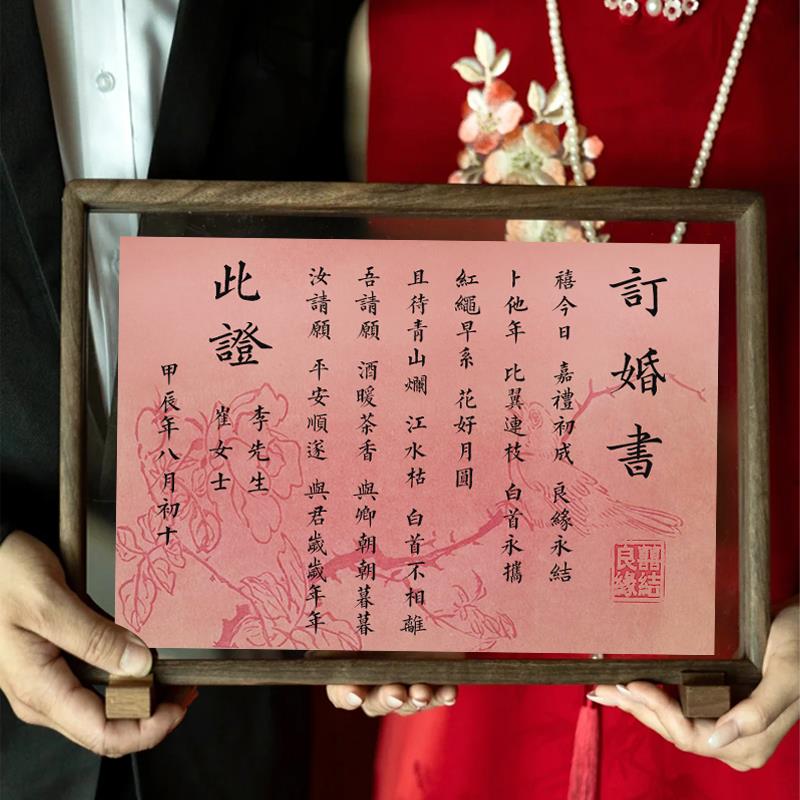 訂婚書
禧今日 嘉禮初成 良緣永結
卜他年 比翼連枝 白首永攜
紅繩早系 花好月圓
且待青山爛 江水枯 白首不相離
吾請願 酒暖茶香 與卿朝朝暮暮
汝請願 平安順遂 與君歲歲年年
此證
李先生
崔女士
甲辰年八月初十
囍結良緣